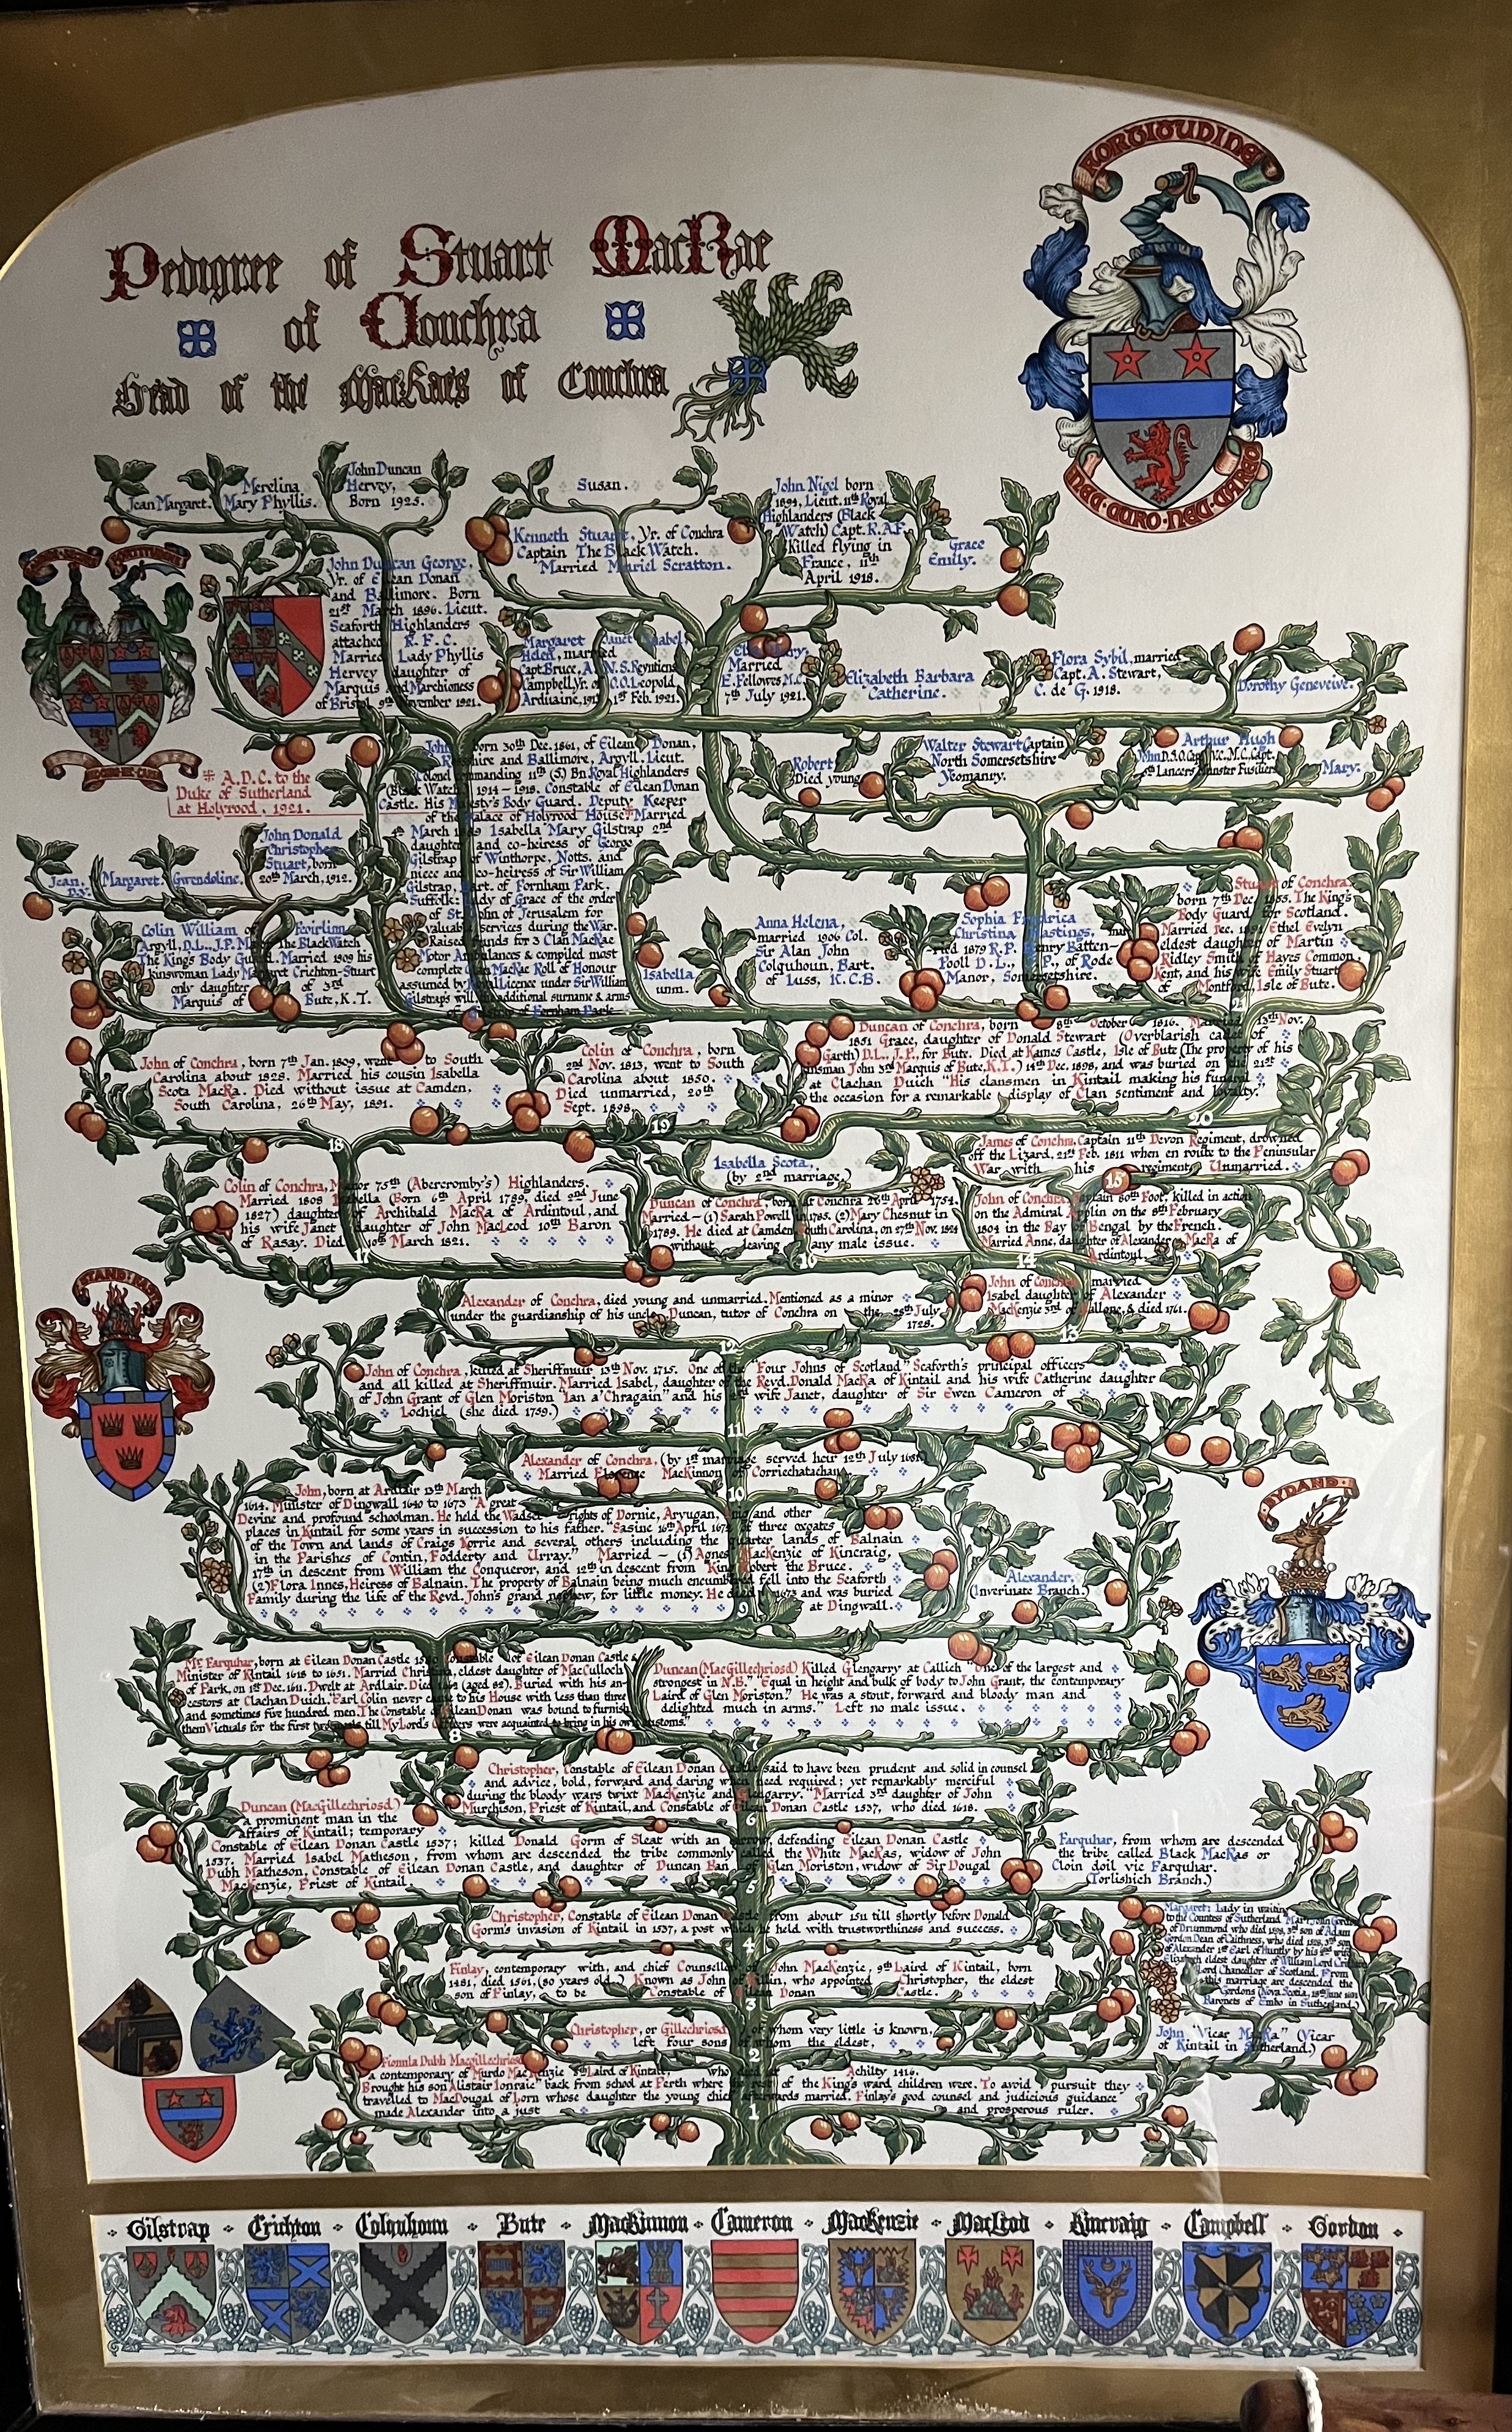 FORTITUDINE
Pedigree of Stuart MacRae
of Conchra
Head of the MacRaes of Conchra
NEC CURO NEC CAREO
Jean Margaret.
Merelina
Mary Phyllis.
John Duncan
Hervey,
Born 1925.
Susan.
Kenneth Stuart, Yr. of Conchra
Captain The Black Watch.
Married Muriel Scratton.
John Nigel born
1894, Lieut. 11th Royal
Highlanders (Black
Watch) Capt. R.A.F.
Killed flying in
France, 11th
April 1918.
Grace
Emily.
John Duncan George,
Yr. of Eilean Donan
and Ballimore. Born
21st March 1896. Lieut.
Seaforth Highlanders
attached R.F.C.
Married Lady Phyllis
Hervey daughter of
Marquis and Marchioness
of Bristol 9th November 1921.
Margaret
Helen, married
Capt. Bruce, A.
Campbell, Yr. of
Arduaine,
Janet Isabel
N.S. Reyntiens
C.O. Leopold,
1st Feb. 1921.
Married
E. Fellowes M.C.
7th July 1921.
Elizabeth Barbara
Catherine.
Flora Sybil, married
Capt. A. Stewart,
C. de G. 1918.
Dorothy Genevieve.
A.D.C. to the
Duke of Sutherland
at Holyrood, 1921.
John born 30th Dec. 1861, of Eilean Donan,
Ross-shire and Ballimore, Argyll. Lieut.
Colonel commanding 11th (S) Bn Royal Highlanders
(Black Watch) 1914-1918. Constable of Eilean Donan
Castle. His Majesty's Body Guard. Deputy Keeper
of the Palace of Holyrood House Married
4th March 1889 Isabella Mary Gilstrap 2nd
daughter and co-heiress of George
Gilstrap of Winthorpe, Notts. and
niece and co-heiress of Sir William
Gilstrap, Bart. of Fornham Park.
Suffolk: Lady of Grace of the order
of St. John of Jerusalem for
valuable services during the War.
Raised funds for 3 Clan MacRae
Motor Ambulances & compiled most
complete Clan MacRae Roll of Honour
assumed by Royal Licence under Sir William
Gilstrap's will the additional surname & arms
of Gilstrap of Fornham Park.
Robert
Died young
Walter Stewart Captain
North Somersetshire
Yeomanry.
John D.S.O. Capt.
Lancers
Arthur Hugh
V.C. M.C. Capt.
Munster Fusiliers
Mary.
Jean,
D.Y.
Margaret.
Gwendoline.
John Donald
Christopher
Stuart, born
20th March, 1912.
Colin William of Feoirlinn
Argyll, D.L., J.P. Major The Black Watch
The King's Body Guard. Married 1909 his
kinswoman Lady Margaret Crichton-Stuart
only daughter of 3rd
Marquis of Bute, K.T.
Isabella
unm.
Anna Helena,
married 1906 Col.
Sir Alan John
Colquhoun, Bart.
of Luss, K.C.B.
Sophia Fredrica
Christina Hastings,
married 1879 R.P. Henry Batten-
Pooll D.L., J.P., of Rode
Manor, Somersetshire.
Stuart of Conchra.
born 7th Dec. 1855. The King's
Body Guard for Scotland.
Married Ethel Evelyn
eldest daughter of Martin
Ridley Smith of Hayes Common,
Kent, and his wife Emily Stuart
of Montford, Isle of Bute.
John of Conchra, born 7th Jan. 1809, went to South
Carolina about 1828. Married his cousin Isabella
Scota MacRa. Died without issue at Camden.
South Carolina, 26th May, 1891.
Colin of Conchra, born
2nd Nov. 1813, went to South
Carolina about 1850.
Died unmarried, 20th
Sept. 1898.
Duncan of Conchra, born 8th October 1816. Married 13th Nov.
1851 Grace, daughter of Donald Stewart (Overblarish cadet of
Garth) D.L., J.P., for Bute. Died at Kames Castle, Isle of Bute (The property of his
kinsman John 3rd Marquis of Bute, K.T.) 14th Dec. 1898, and was buried on the 21st
at Clachan Duich "His clansmen in Kintail making his funeral
the occasion for a remarkable display of Clan sentiment and loyalty."
18
19
20
Isabella Scota,
(by 2nd marriage.)
James of Conchra, Captain 11th Devon Regiment, drowned
off the Lizard, 21st Feb. 1811 when en route to the Peninsular
War with his regiment. Unmarried.
15
Colin of Conchra, Major 75th (Abercromby's) Highlanders.
Married 1808 Isabella (Born 6th April 1789, died 2nd June
1827) daughter of Archibald MacRa of Ardintoul, and
his wife Janet daughter of John MacLeod 10th Baron
of Rasay. Died 10th March 1821.
Duncan of Conchra, born at Conchra 26th April 1754.
Married - (1) Sarah Powell in 1785. (2) Mary Chesnut in
1789. He died at Camden South Carolina, on 27th Nov. 1824
without leaving any male issue.
John of Conchra, Captain 80th Foot, killed in action
on the Admiral Applin on the 8th February
1804 in the Bay of Bengal by the French.
Married Anne, daughter of Alexander MacRa of
Ardintoul.
17
16
14
Alexander of Conchra, died young and unmarried. Mentioned as a minor
under the guardianship of his uncle Duncan, tutor of Conchra on the 25th July
1728.
John of Conchra married
Isabel daughter of Alexander
MacKenzie 3rd of & died 1761.
12
13
John of Conchra, killed at Sheriffmuir 13th Nov. 1715. One of the "Four Johns of Scotland" Seaforth's principal officers
and all killed at Sheriffmuir. Married Isabel, daughter of the Revd. Donald MacRa of Kintail and his wife Catherine daughter
of John Grant of Glen Moriston "Ian a' Chragain" and his 2nd wife Janet, daughter of Sir Ewen Cameron of
Lochiel (she died 1759.)
STAND FAST
11
Alexander of Conchra, (by 1st marriage served heir 12th July 1681.
Married Florence MacKinnon of Corriechatachan.
10
John, born at Ardlair 13th March
1614. Minister of Dingwall 1640 to 1673 "A great
Devine and profound schoolman. He held the Wadset rights of Dornie, Aryugan, and other
places in Kintail for some years in succession to his father." Sasine 16th April 1672 of three oxgates
of the Town and lands of Craigs Korrie and several others including the quarter lands of Balnain
in the Parishes of Contin, Fodderty and Urray." Married - (1) Agnes MacKenzie of Kincraig,
17th in descent from William the Conqueror, and 12th in descent from King Robert the Bruce.
(2) Flora Innes, Heiress of Balnain. The property of Balnain being much encumbered fell into the Seaforth
Family during the life of the Revd. John's grand nephew, for little money. He died 1673 and was buried
at Dingwall.
Alexander.
(Inverinate Branch.)
BYDAND
9
Mr. Farquhar, born at Eilean Donan Castle 1580 Constable of Eilean Donan Castle &
Minister of Kintail 1618 to 1651. Married Christina, eldest daughter of MacCulloch
of Park, on 1st Dec. 1611. Dwelt at Ardlair. Died 1662 (aged 82). Buried with his an-
cestors at Clachan Duich. "Earl Colin never came to his House with less than three
and sometimes five hundred men. The Constable of Eilean Donan was bound to furnish
them Victuals for the first two meals till My Lord's Officers were acquainted to bring in his own customs."
Duncan (MacGillechriosd) Killed Glengarry at Callich "One of the largest and
strongest in N.B." "Equal in height and bulk of body to John Grant, the contemporary
Laird of Glen Moriston." He was a stout, forward and bloody man and
delighted much in arms." Left no male issue.
8
7
Christopher, Constable of Eilean Donan Castle said to have been prudent and solid in counsel
and advice, bold, forward and daring when need required; yet remarkably merciful
during the bloody wars twixt MacKenzie and Glengarry." Married 3rd daughter of John
Murchison, Priest of Kintail, and Constable of Eilean Donan Castle 1537, who died 1618.
6
Duncan (MacGillechriosd)
a prominent man in the
affairs of Kintail; temporary
Constable of Eilean Donan Castle 1537; killed Donald Gorm of Sleat with an arrow, defending Eilean Donan Castle
1537. Married Isabel Matheson, from whom are descended the tribe commonly called the White MacRas, widow of John
Dubh Matheson, Constable of Eilean Donan Castle, and daughter of Duncan Ban of Glen Moriston, widow of Sir Dougal
MacKenzie, Priest of Kintail.
Farquhar, from whom are descended
the tribe called Black MacRas or
Cloin doil vic Farquhar.
(Torlishich Branch.)
5
Christopher, Constable of Eilean Donan Castle from about 1511 till shortly before Donald
Gorm's invasion of Kintail in 1537, a post which he held with trustworthiness and success.
4
Margaret: Lady in waiting
to the Countess of Sutherland. Mar. John Gordon
of Drummond who died 1598, 3rd son of Adam
Gordon Dean of Caithness, who died 1528, 3rd son
of Alexander 1st Earl of Huntly by his 2nd wife
Elizabeth eldest daughter of William Lord Crichton
Lord Chancellor of Scotland. From
this marriage are descended the
Gordons (Nova Scotia, 18th June 1631
Baronets of Embo in Sutherland.)
Finlay, contemporary with, and chief Counsellor of John MacKenzie, 9th Laird of Kintail, born
1481, died 1561, (80 years old.) Known as John of Killin, who appointed Christopher, the eldest
son of Finlay, to be Constable of Eilean Donan Castle.
3
Christopher, or Gillechriosd of whom very little is known,
left four sons of whom the eldest,
2
John "Vicar MacRa" (Vicar
of Kintail in Sutherland.)
Fionnla Dubh Macgillechriosd
a contemporary of Murdo MacKenzie 5th Laird of Kintail, who died at Achilty 1416.
Brought his son Alistair Ionraic" back from school at Perth where the rest of the King's ward children were. To avoid pursuit they
travelled to MacDougal of Lorn whose daughter the young chief afterwards married. Finlay's good counsel and judicious guidance
made Alexander into a just and prosperous ruler.
1
Gilstrap Crichton Colquhoun Bute MacKinnon Cameron MacKenzie MacLeod Kincraig Campbell Gordon